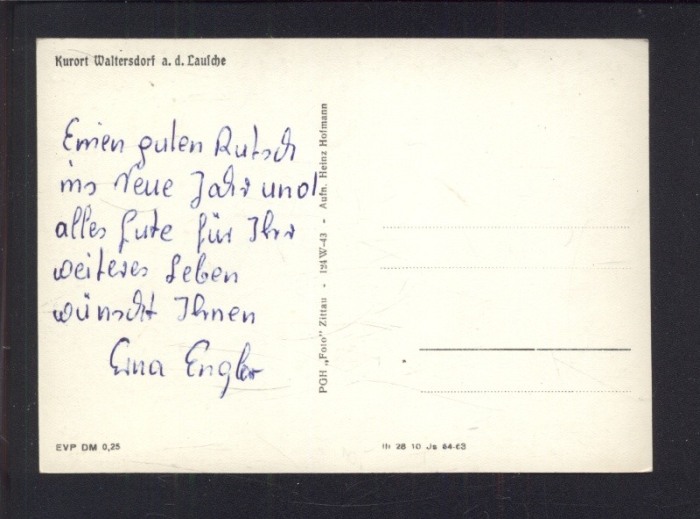 Kurort Waltersdorf a. d. Lausche
Einen guten Rutsch
ins Neue Jahr und
alles Gute für Ihr
weiteres Leben
wünscht Ihnen
Erna Engler
PGH „Foto" Zittau - 194 W-43 - Aufn. Heinz Hofmann
EVP DM 0,25
28 10 Js 64-63